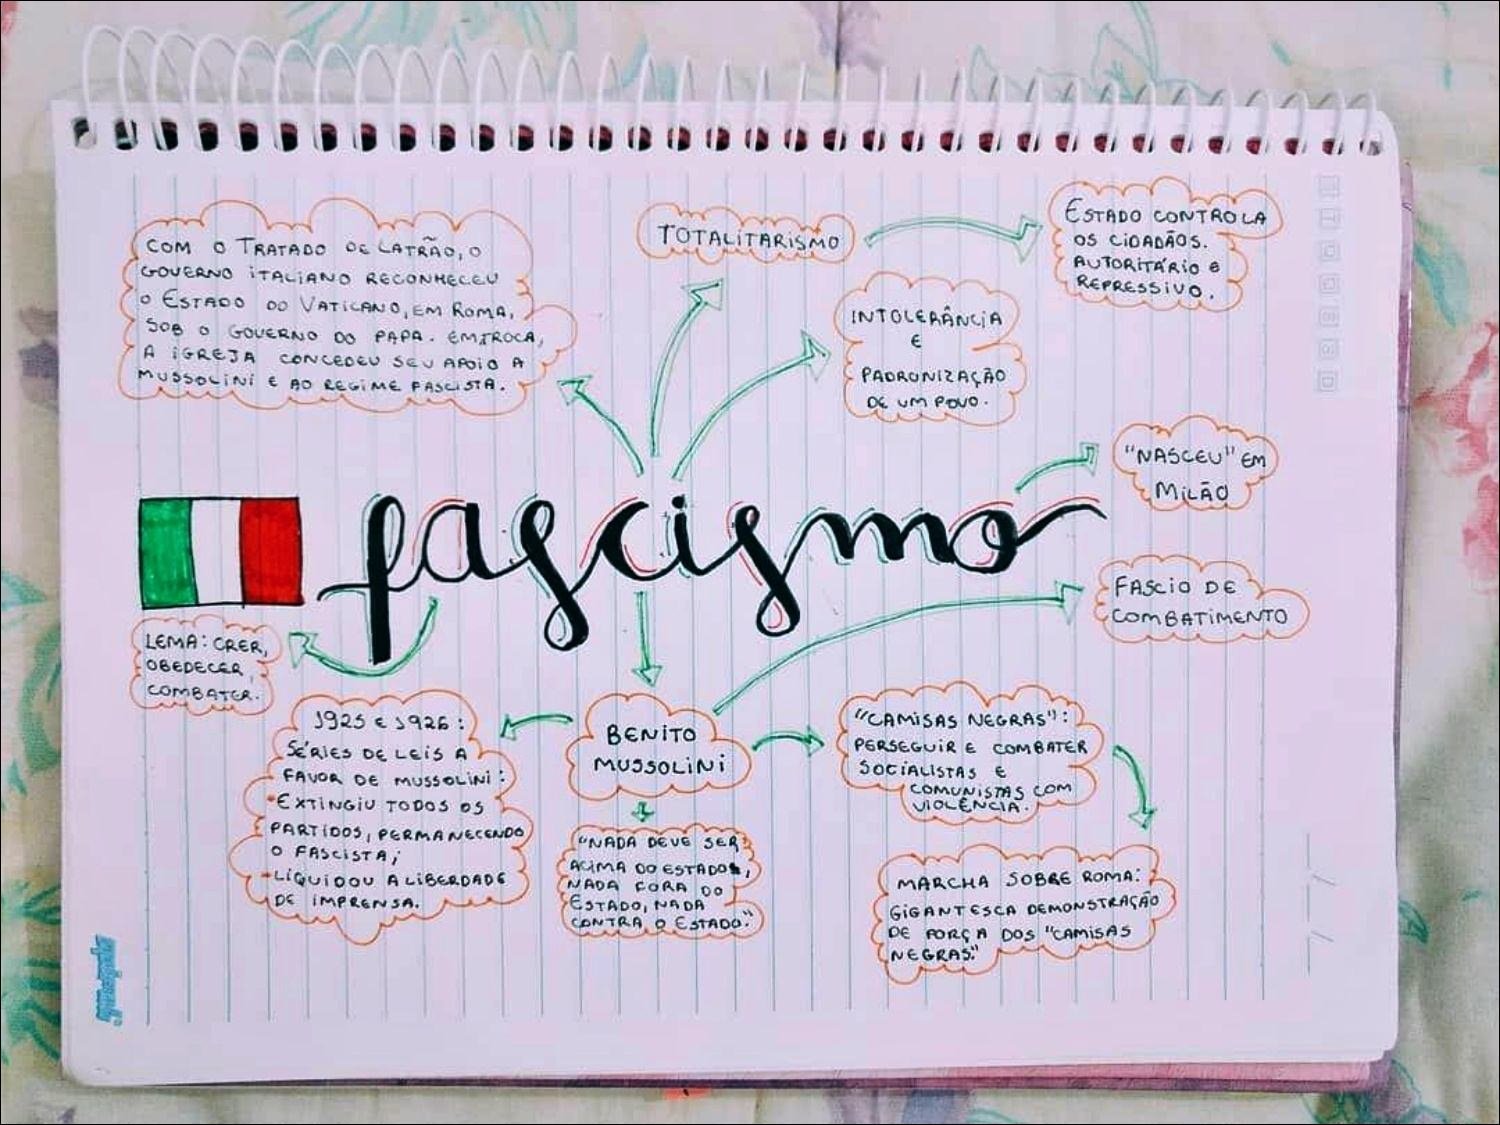 COM O TRATADO DE LATRÃO, O
GOVERNO ITALIANO RECONHECEU
O ESTADO DO VATICANO, EM ROMA,
SOB O GOVERNO DO PAPA. EM TROCA,
A IGREJA CONCEDEU SEU APOIO A
MUSSOLINI E AO REGIME FASCISTA.
TOTALITARISMO
ESTADO CONTROLA
OS CIDADÃOS.
AUTORITÁRIO E
REPRESSIVO.
INTOLERÂNCIA
E
PADRONIZAÇÃO
DE UM POVO.
"NASCEU" EM
MILÃO
fascismo
FASCIO DE
COMBATIMENTO
LEMA: CRER,
OBEDECER,
COMBATER.
1925 E 1926:
SÉRIES DE LEIS A
FAVOR DE MUSSOLINI:
-EXTINGIU TODOS OS
PARTIDOS, PERMANECENDO
O FASCISTA;
-LIQUIDOU A LIBERDADE
DE IMPRENSA.
BENITO
MUSSOLINI
"NADA DEVE SER
ACIMA DO ESTADO,
NADA FORA DO
ESTADO, NADA
CONTRA O ESTADO."
"CAMISAS NEGRAS":
PERSEGUIR E COMBATER
SOCIALISTAS E
COMUNISTAS COM
VIOLÊNCIA.
MARCHA SOBRE ROMA:
GIGANTESCA DEMONSTRAÇÃO
DE FORÇA DOS "CAMISAS
NEGRAS."